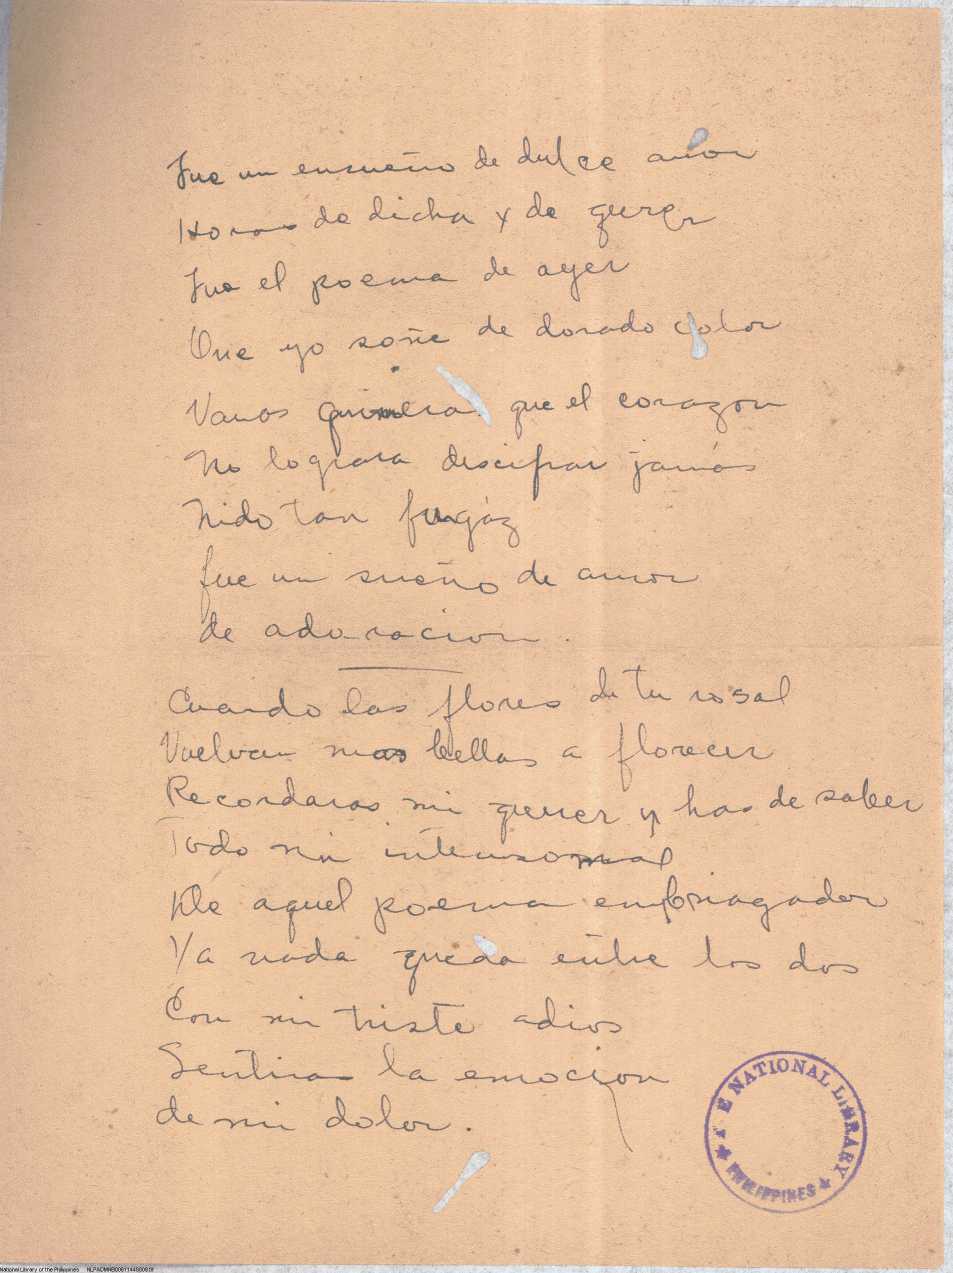 Fue un ensueño de dulce amor
Horas de dicha y de querer
Fue el poema de ayer
Que yo soñe de dorado color
Vanos quimera que el corazon
No lograra descifrar jamás
Nido tan fugáz
fue un sueño de amor
de adoracion.
Cuando las flores de tu rosal
Vuelvan mas bellas a florecer
Recordaras mi querer y has de saber
Todo mi intenso mal
De aquel poema embriagador
Ya nada queda entre los dos
Con mi triste adios
Sentiras la emocion
de mi dolor.
THE NATIONAL LIBRARY
PHILIPPINES
National Library of the Philippines